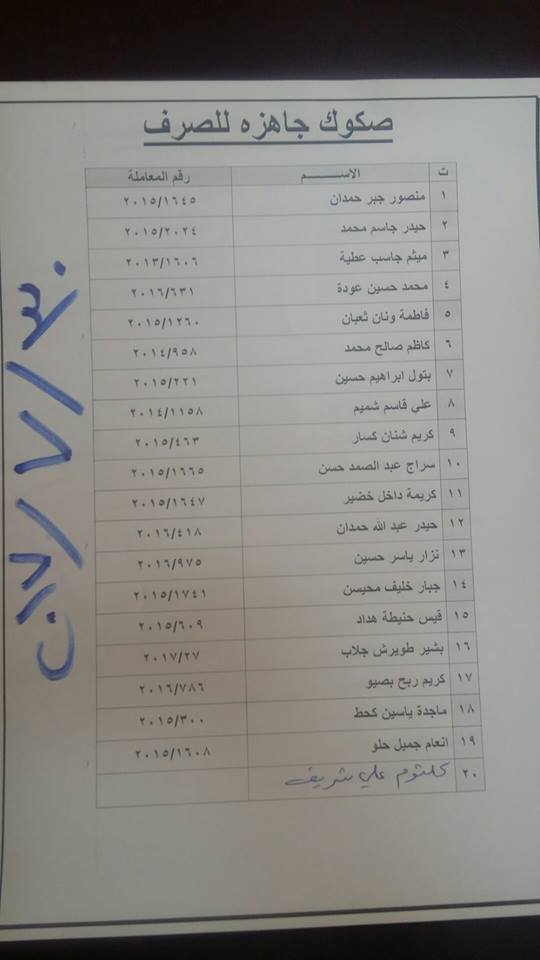 صكوك جاهزه للصرف
ت الاســـــم رقم المعاملة
١ منصور جبر حمدان ٢٠١٥/١٦٤٥
٢ حيدر جاسم محمد ٢٠١٥/٢٠٢٤
٣ ميثم جاسب عطية ٢٠١٣/١٦٠٦
٤ محمد حسين عودة ٢٠١٦/٦٣١
٥ فاطمة ونان ثعبان ٢٠١٥/١٢٦٠
٦ كاظم صالح محمد ٢٠١٤/٩٥٨
٧ بتول ابراهيم حسين ٢٠١٥/٢٢١
٨ علي قاسم شميم ٢٠١٤/١١٥٨
٩ كريم شنان كسار ٢٠١٥/٤٦٣
١٠ سراج عبد الصمد حسن ٢٠١٥/١٦٦٥
١١ كريمة داخل خضير ٢٠١٥/١٦٤٧
١٢ حيدر عبد الله حمدان ٢٠١٦/٤١٨
١٣ نزار ياسر حسين ٢٠١٦/٩٧٥
١٤ جبار خليف محيسن ٢٠١٥/١٧٤١
١٥ قيس حنيطة هداد ٢٠١٥/٦٠٩
١٦ بشير طويرش جلاب ٢٠١٧/٢٧
١٧ كريم ربح بصيو ٢٠١٦/٧٨٦
١٨ ماجدة ياسين كحط ٢٠١٥/٣٠٠
١٩ انعام جميل حلو ٢٠١٥/١٦٠٨
٢٠ كلثوم علي شريف
٢٠١٧/٧/٣٠